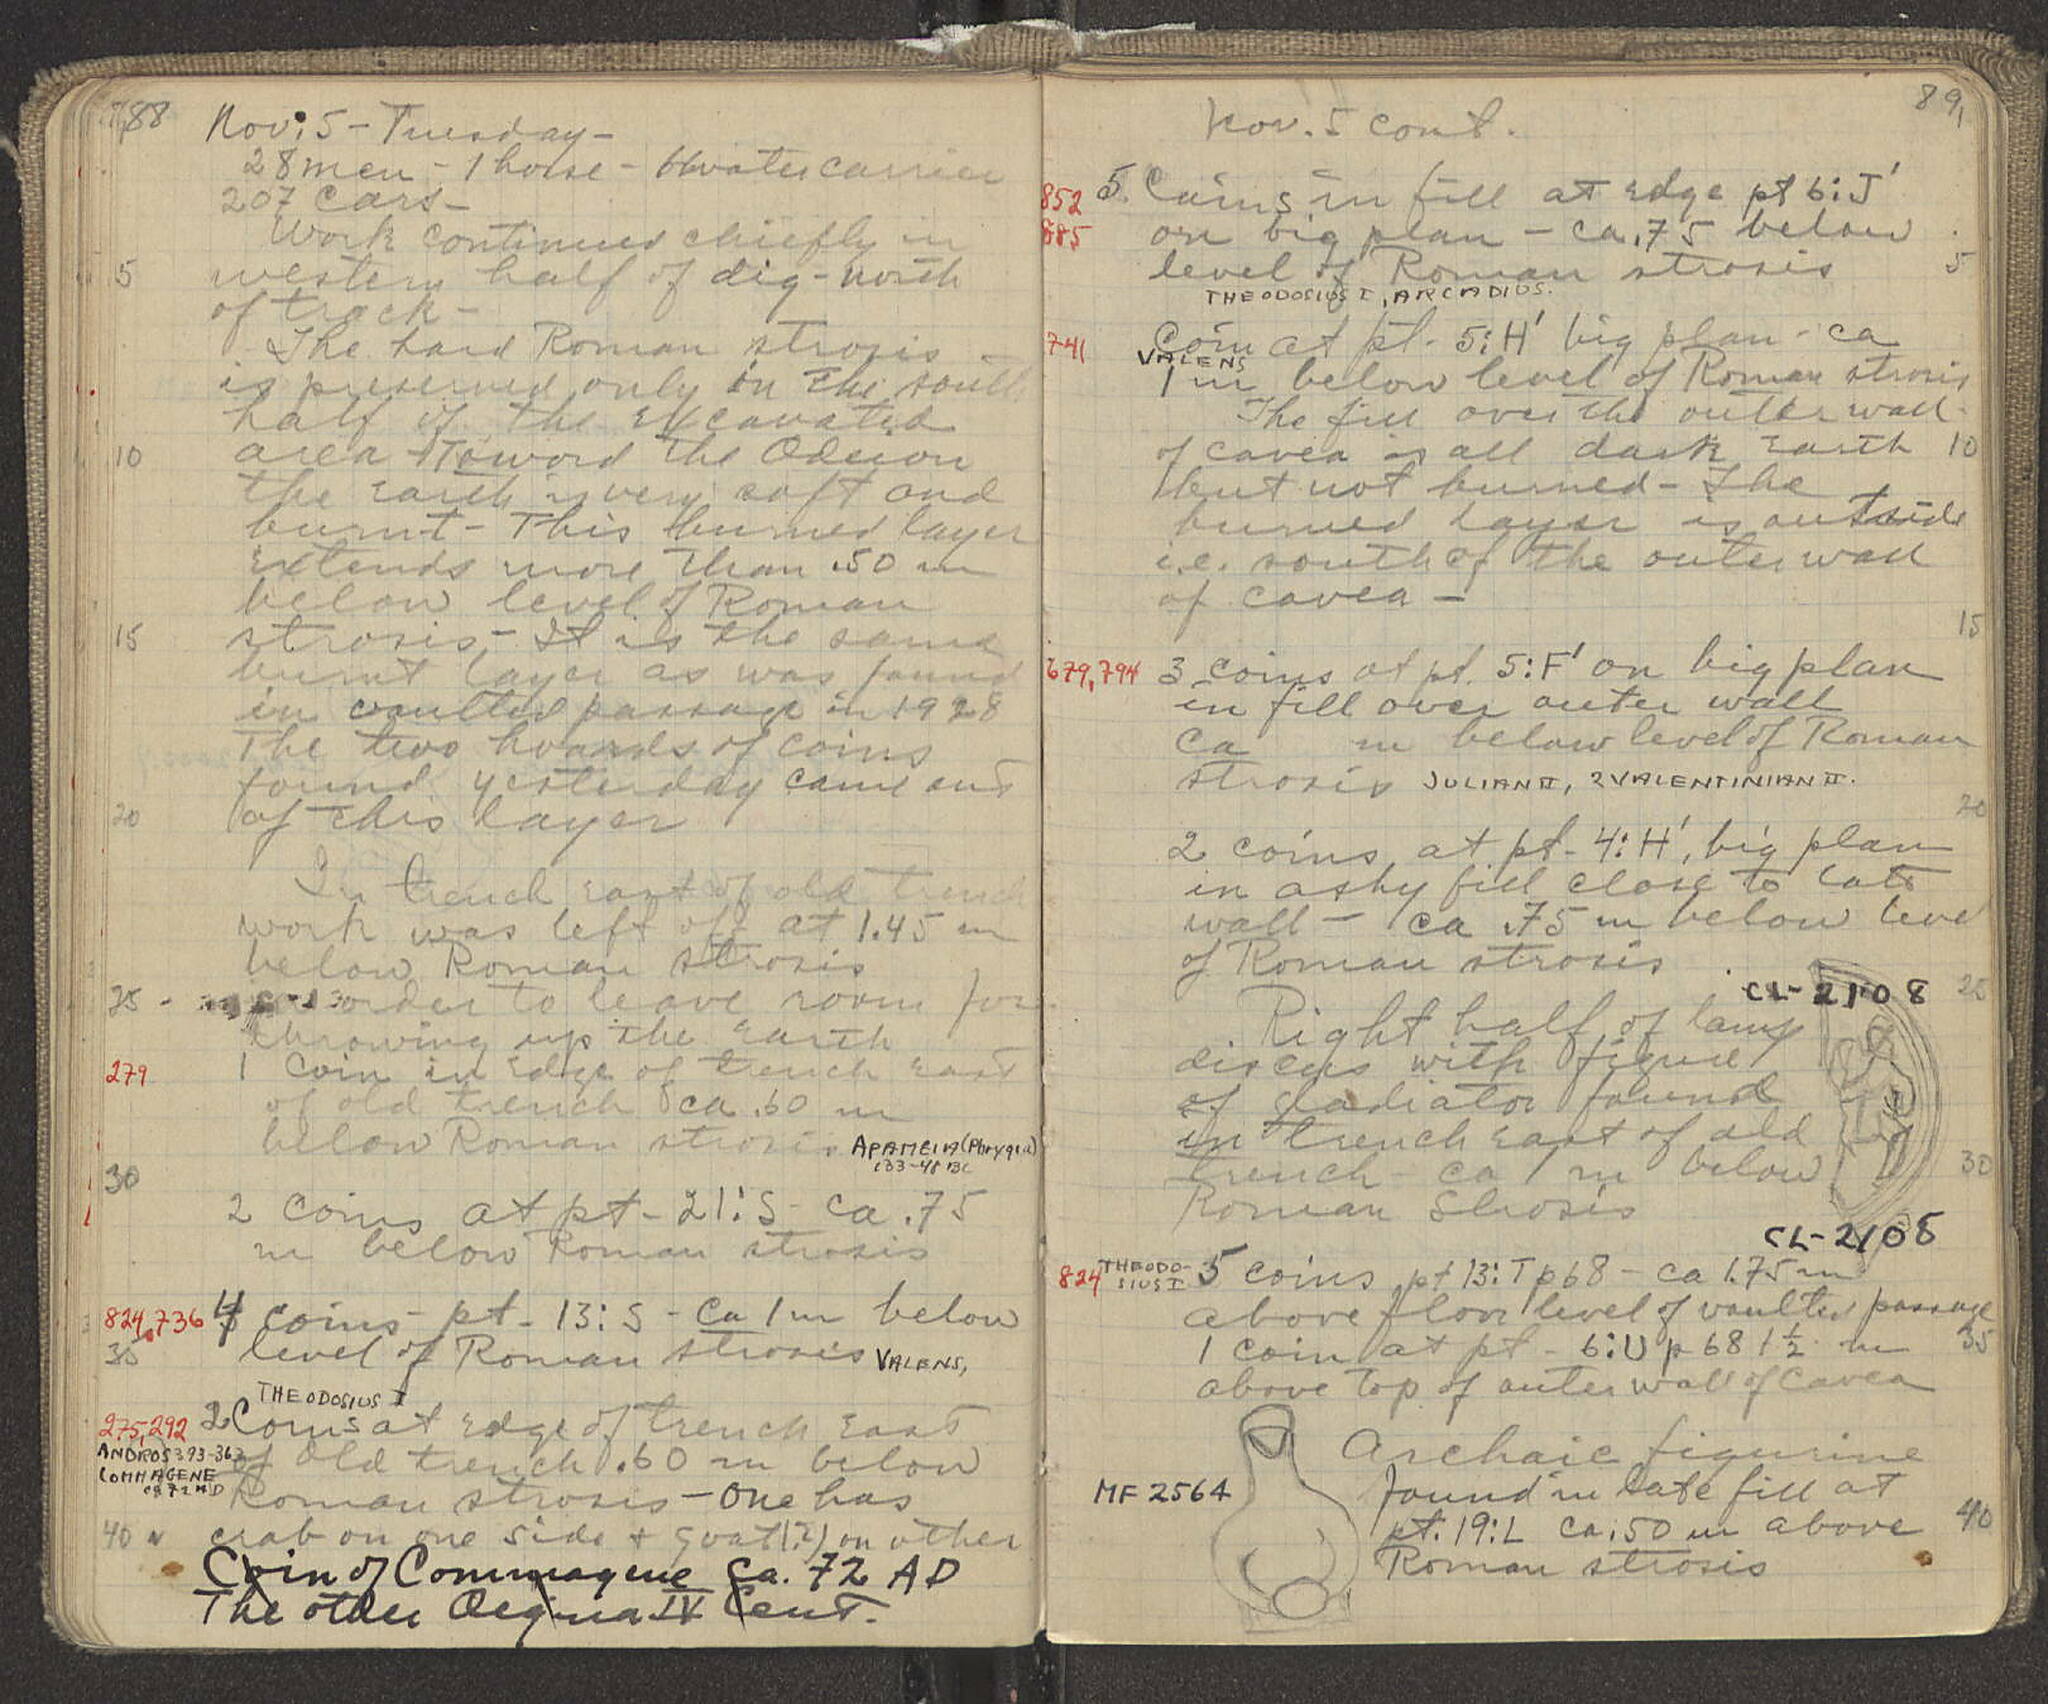 88
Nov. 5 - Tuesday -
28 men - 1 horse - water carrier
207 cars -
Work continued chiefly in
5 western half of dig - north
of track -
The hard Roman strosis
is preserved only in the south
half of the excavated
10 area Toward the Odeion
the earth is very soft and
burnt - This burned layer
extends more than .50 m
below level of Roman
15 strosis - It is the same
burnt layer as was found
in vaulted passage in 1928
The two hoards of coins
found yesterday came out
20 of this layer
In trench east of old trench
work was left off at 1.45 m
below Roman strosis
25 order to leave room for
throwing up the earth
279 1 coin in edge of trench east
of old trench ca .60 m
below Roman strosis APAMEIA (Phrygia)
133-48 BC
30
2 coins at pt - 21:S - ca .75
m below Roman strosis
824, 736 4 coins - pt - 13:S - ca 1 m below
35 level of Roman strosis VALENS,
THEODOSIUS I
275, 292 2 Coins at edge of trench east
ANDROS 393-363 of old trench .60 m below
COMMAGENE
ca 72 AD Roman strosis - One has
40 crab on one side + goat(?) on other
Coin of Commagene ca. 72 AD
The other Aegina IV Cent.
89
Nov. 5 cont.
852 5 Coins in fill at edge pt 6:J'
885 on big plan - ca .75 below
level of Roman strosis 5
THEODOSIUS I, ARCADIUS.
741 Coin at pt - 5:H' big plan - ca
VALENS
1 m below level of Roman strosis
The fill over the outer wall
of cavea is all dark earth 10
but not burned - The
burned layer is outside
i.e. south of the outer wall
of cavea -
15
679, 794 3 coins at pt. 5:F' on big plan
in fill over outer wall
ca m below level of Roman
strosis JULIAN II, 2 VALENTINIAN II.
20
2 coins at pt - 4:H', big plan
in ashy fill close to late
wall - ca .75 m below level
of Roman strosis
CL-2108 25
Right half of lamp
discus with figure
of gladiator found
in trench east of old
trench ca 1 m below 30
Roman Strosis
CL-2108
824 THEODO-
SIUS I 5 coins pt 13:T p 68 - ca 1.75 m
above floor level of vaulted passage
1 coin at pt - 6:U p 68 1 ½ m 35
above top of outer wall of Cavea
Archaic figurine
MF 2564 found in late fill at
pt. 19:L ca .50 m above 40
Roman strosis